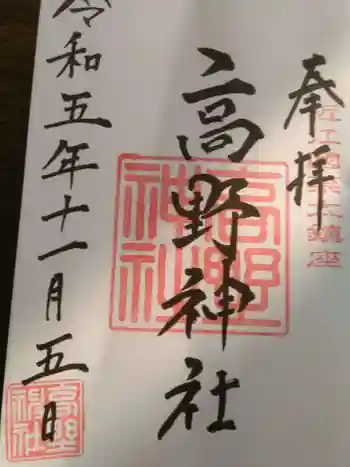 奉拝
高野神社
高野神社
令和五年十一月五日
高野神社